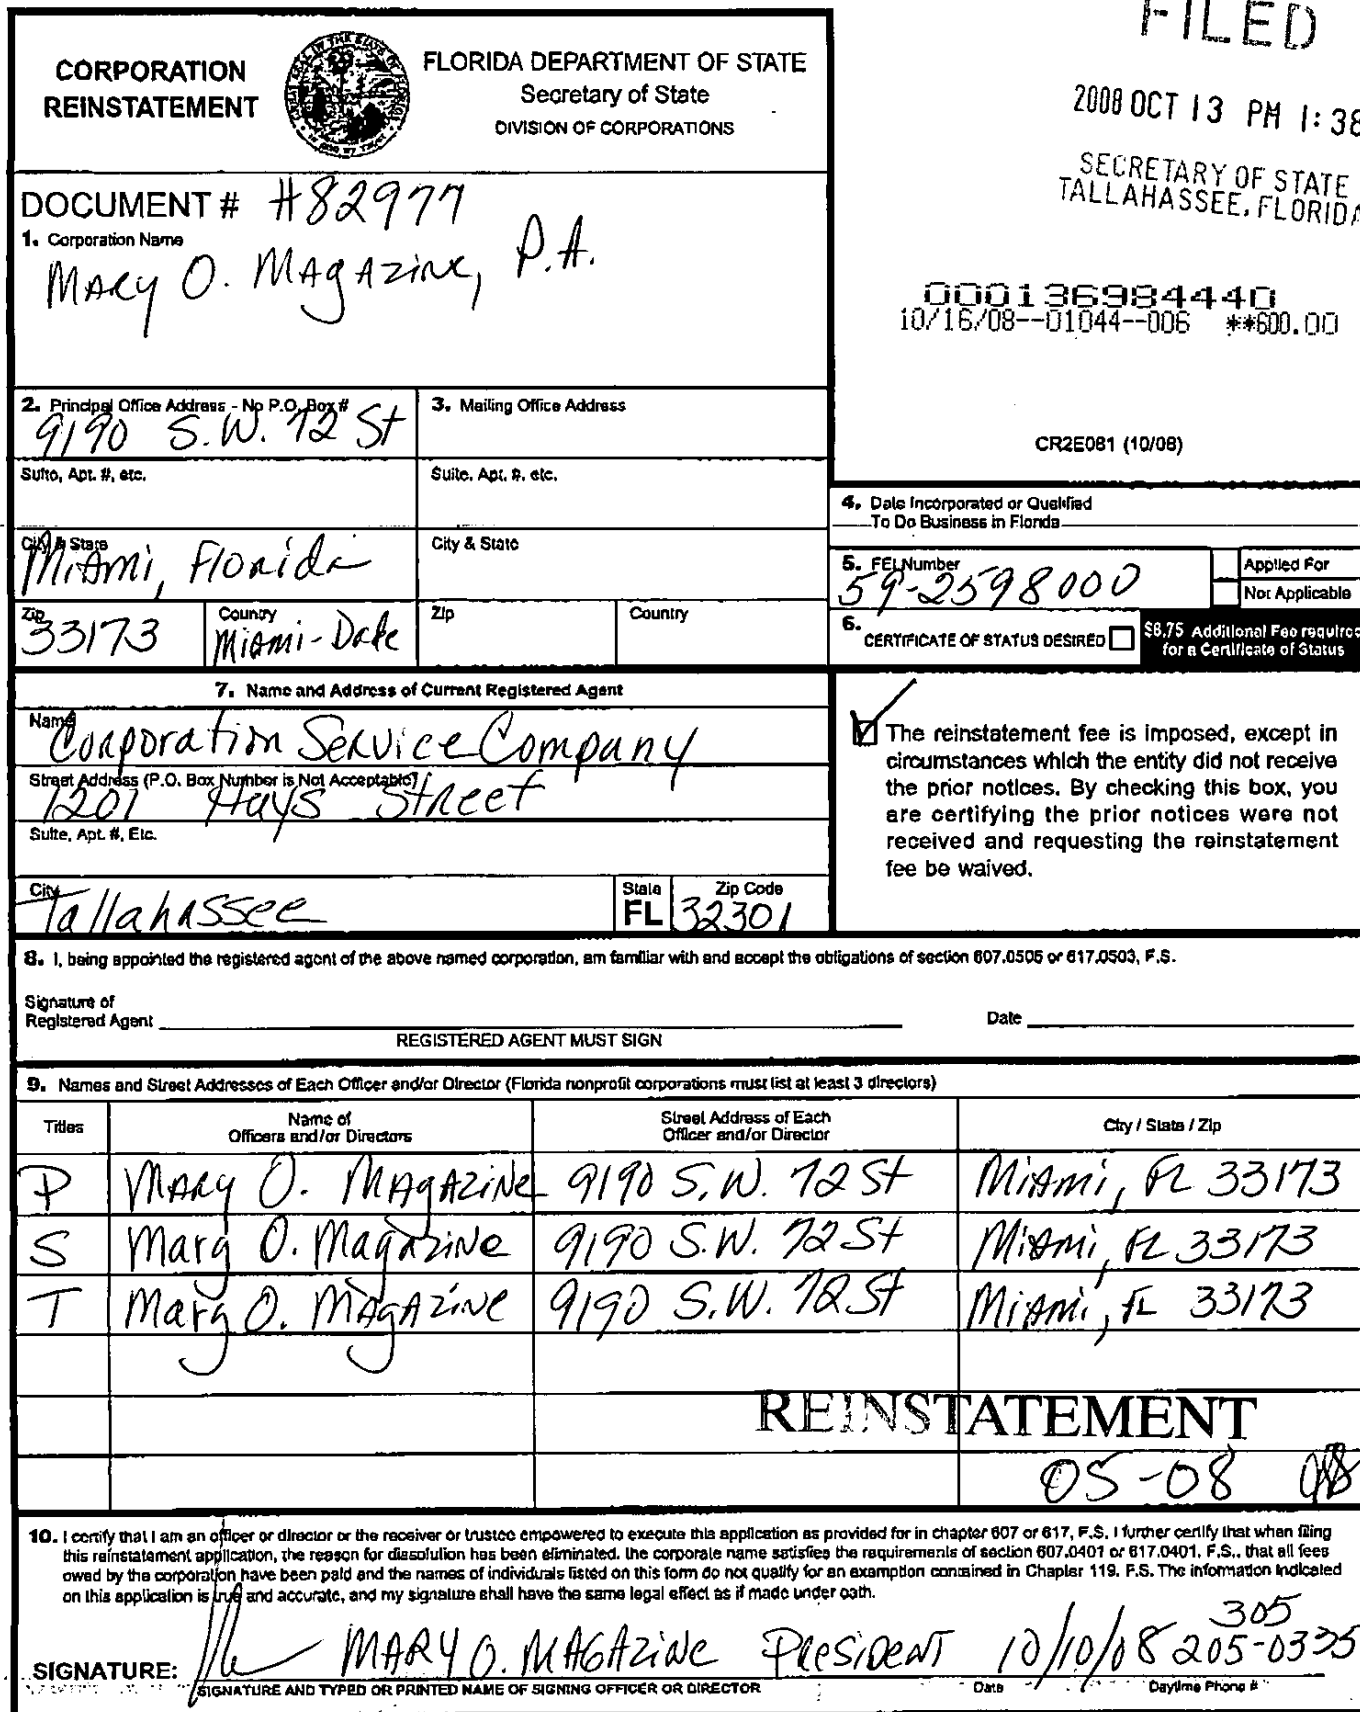 FILED
2008 OCT 13 PM 1:38
SECRETARY OF STATE
TALLAHASSEE, FLORIDA
CORPORATION
REINSTATEMENT
FLORIDA DEPARTMENT OF STATE
Secretary of State
DIVISION OF CORPORATIONS
DOCUMENT # H82977
1. Corporation Name
Mary O. Magazine, P.A.
000136984440
10/16/08--01044--006 **600.00
2. Principal Office Address - No P.O. Box #
9190 S.W. 72 St
3. Mailing Office Address
CR2E081 (10/08)
Suite, Apt. #, etc.
Suite, Apt. #, etc.
4. Date Incorporated or Qualified
To Do Business in Florida
City & State
Miami, Florida
City & State
5. FEI Number
59-2598000
Applied For
Not Applicable
Zip
33173
Country
Miami-Dade
Zip
Country
6. CERTIFICATE OF STATUS DESIRED
$8.75 Additional Fee required
for a Certificate of Status
7. Name and Address of Current Registered Agent
Name
Corporation Service Company
Street Address (P.O. Box Number is Not Acceptable)
1201 Hays Street
Suite, Apt. #, Etc.
City
Tallahassee
State
FL
Zip Code
32301
The reinstatement fee is imposed, except in
circumstances which the entity did not receive
the prior notices. By checking this box, you
are certifying the prior notices were not
received and requesting the reinstatement
fee be waived.
8. I, being appointed the registered agent of the above named corporation, am familiar with and accept the obligations of section 607.0505 or 617.0503, F.S.
Signature of
Registered Agent
Date
REGISTERED AGENT MUST SIGN
9. Names and Street Addresses of Each Officer and/or Director (Florida nonprofit corporations must list at least 3 directors)
Titles
Name of
Officers and/or Directors
Street Address of Each
Officer and/or Director
City / State / Zip
P Mary O. Magazine 9190 S.W. 72 St Miami, FL 33173
S Mary O. Magazine 9190 S.W. 72 St Miami, FL 33173
T Mary O. Magazine 9190 S.W. 72 St Miami, FL 33173
REINSTATEMENT
05-08
10. I certify that I am an officer or director or the receiver or trustee empowered to execute this application as provided for in chapter 607 or 617, F.S. I further certify that when filing
this reinstatement application, the reason for dissolution has been eliminated, the corporate name satisfies the requirements of section 607.0401 or 617.0401, F.S., that all fees
owed by the corporation have been paid and the names of individuals listed on this form do not qualify for an exemption contained in Chapter 119, F.S. The information indicated
on this application is true and accurate, and my signature shall have the same legal effect as if made under oath.
SIGNATURE: MARY O. MAGAZINE President 10/10/08 305 205-0335
SIGNATURE AND TYPED OR PRINTED NAME OF SIGNING OFFICER OR DIRECTOR
Date
Daytime Phone #